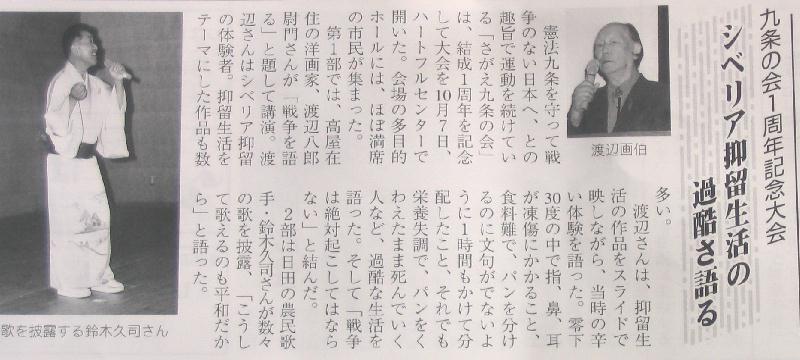 九条の会1周年記念大会
シベリア抑留生活の
過酷さ語る
渡辺画伯
憲法九条を守って戦
争のない日本へ、との
趣旨で運動を続けてい
る「さがえ九条の会」
は、結成1周年を記念
して大会を10月7日、
ハートフルセンターで
開いた。会場の多目的
ホールには、ほぼ満席
の市民が集まった。
第1部では、高屋在
住の洋画家、渡辺八郎
尉門さんが、「戦争を語
る」と題して講演。渡
辺さんはシベリア抑留
の体験者。抑留生活を
テーマにした作品も数
多い。
渡辺さんは、抑留生
活の作品をスライドで
映しながら、当時の辛
い体験を語った。零下
30度の中で指、鼻、耳
が凍傷にかかること、
食料難で、パンを分け
るのに文句がでないよ
うに1時間もかけて分
配したこと、それでも
栄養失調で、パンをく
わえたまま死んでいく
人など、過酷な生活を
語った。そして「戦争
は絶対起こしてはなら
ない」と結んだ。
2部は日田の農民歌
手・鈴木久司さんが数々
の歌を披露、「こうし
て歌えるのも平和だか
ら」と語った。
歌を披露する鈴木久司さん